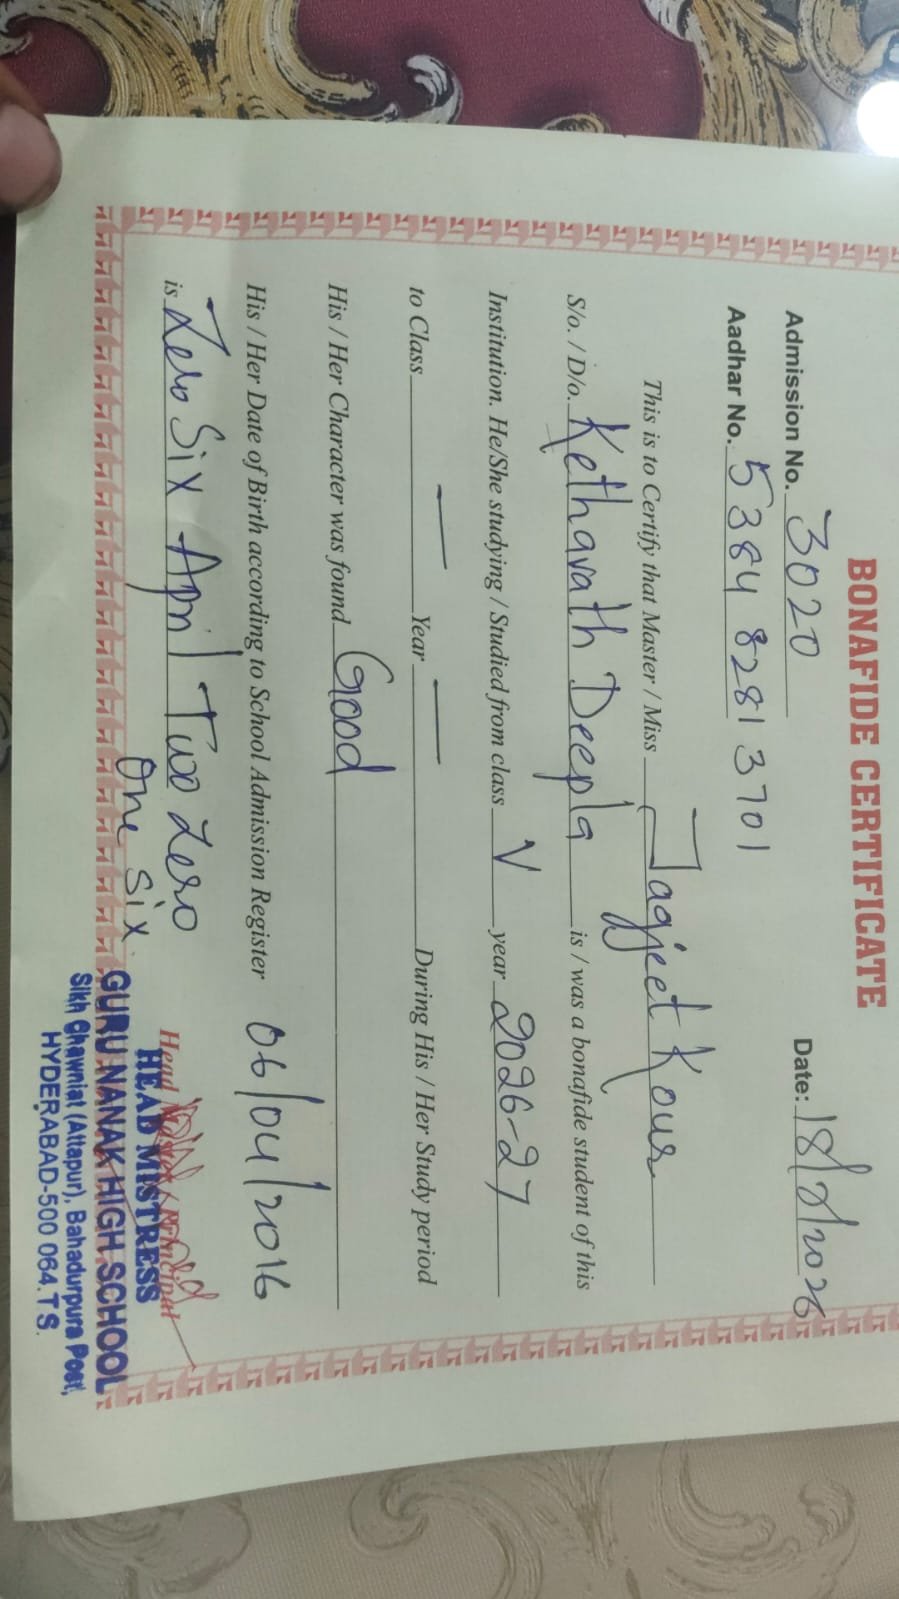 BONAFIDE CERTIFICATE
Admission No. 3020 Date: 18/8/2026
Aadhar No. 5384 8281 3701
This is to Certify that Master / Miss Jagjeet Kour
S/o. / D/o. Kethavath Deepla is / was a bonafide student of this
Institution. He/She studying / Studied from class V year 2026-27
to Class — Year — During His / Her Study period
His / Her Character was found Good
His / Her Date of Birth according to School Admission Register 06/04/2016
is Zero Six April Two Zero
One Six
Head Master / Principal
HEAD MISTRESS
GURU NANAK HIGH SCHOOL
Sikh Chawniat (Attapur), Bahadurpura Post,
HYDERABAD-500 064. T.S.